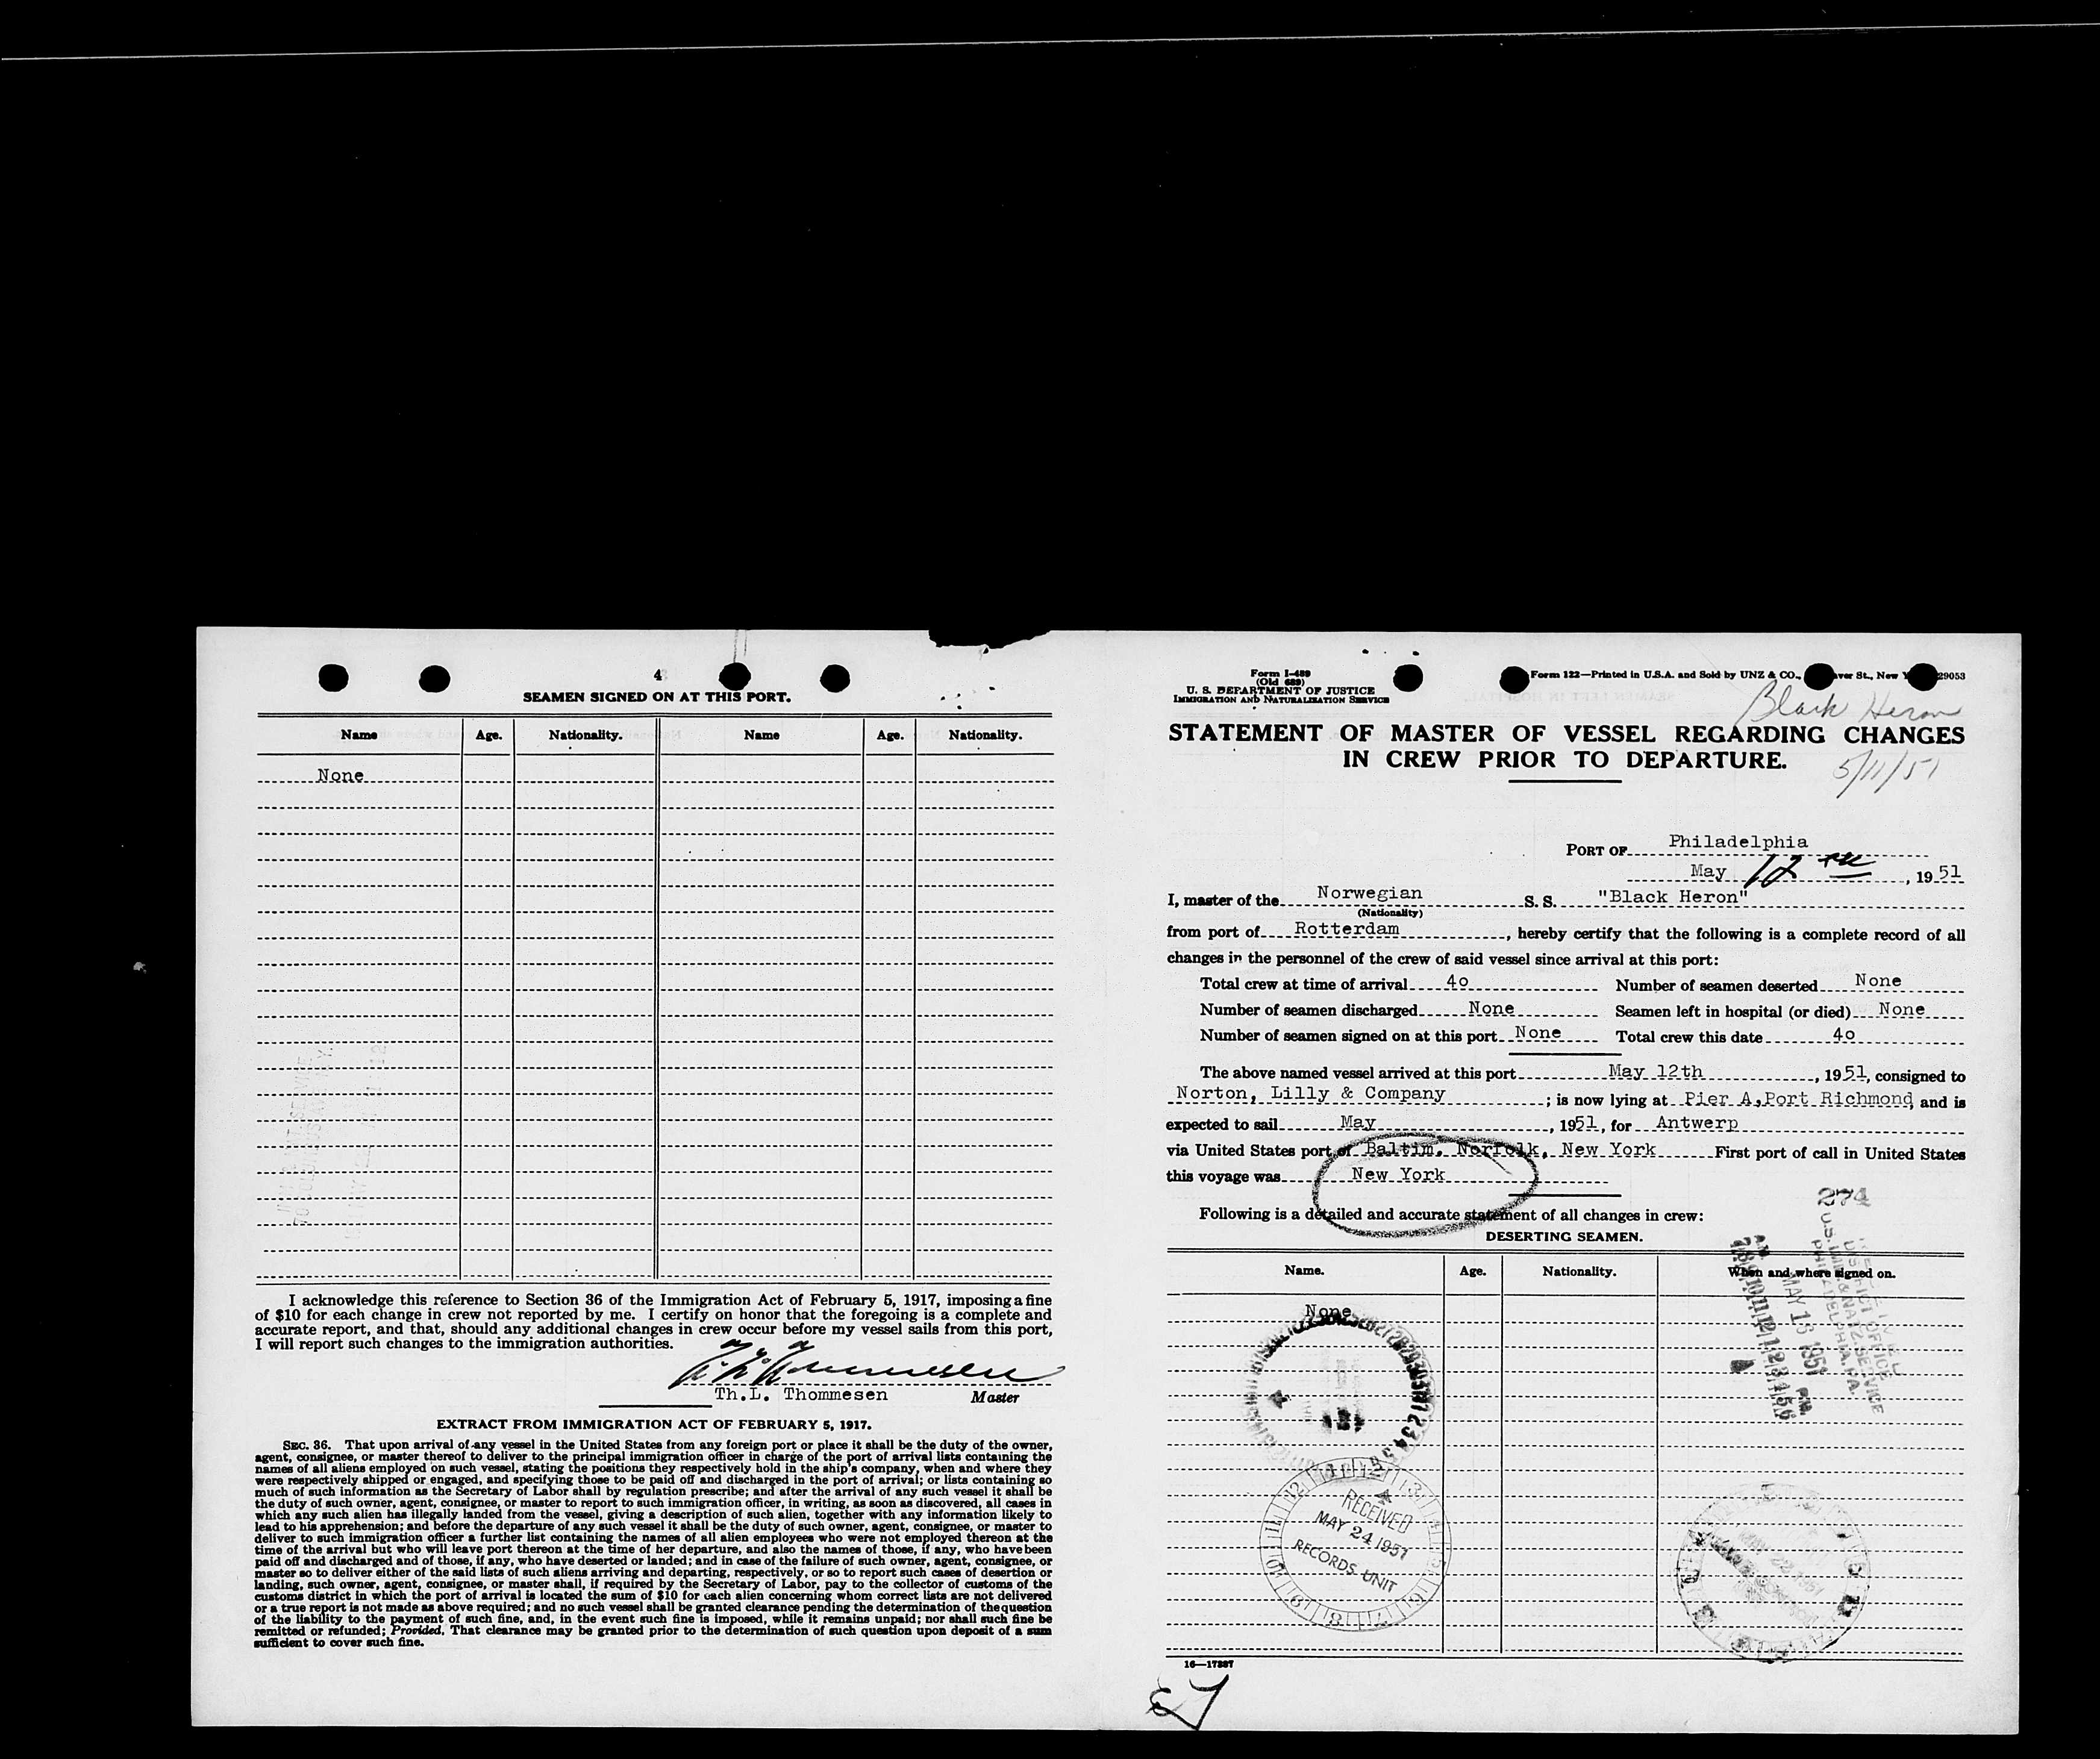 4
SEAMEN SIGNED ON AT THIS PORT.
Name Age. Nationality. Name Age. Nationality.
None
I acknowledge this reference to Section 36 of the Immigration Act of February 5, 1917, imposing a fine
of $10 for each change in crew not reported by me. I certify on honor that the foregoing is a complete and
accurate report, and that, should any additional changes in crew occur before my vessel sails from this port,
I will report such changes to the immigration authorities.
Th. L. Thommesen
Th.L. Thommesen Master
EXTRACT FROM IMMIGRATION ACT OF FEBRUARY 5, 1917.
SEC. 36. That upon arrival of any vessel in the United States from any foreign port or place it shall be the duty of the owner,
agent, consignee, or master thereof to deliver to the principal immigration officer in charge of the port of arrival lists containing the
names of all aliens employed on such vessel, stating the positions they respectively hold in the ship's company, when and where they
were respectively shipped or engaged, and specifying those to be paid off and discharged in the port of arrival; or lists containing so
much of such information as the Secretary of Labor shall by regulation prescribe; and after the arrival of any such vessel it shall be
the duty of such owner, agent, consignee, or master to report to such immigration officer, in writing, as soon as discovered, all cases in
which any such alien has illegally landed from the vessel, giving a description of such alien, together with any information likely to
lead to his apprehension; and before the departure of any such vessel it shall be the duty of such owner, agent, consignee, or master to
deliver to such immigration officer a further list containing the names of all alien employees who were not employed thereon at the
time of the arrival but who will leave port thereon at the time of her departure, and also the names of those, if any, who have been
paid off and discharged and of those, if any, who have deserted or landed; and in case of the failure of such owner, agent, consignee, or
master so to deliver either of the said lists of such aliens arriving and departing, respectively, or so to report such cases of desertion or
landing, such owner, agent, consignee, or master shall, if required by the Secretary of Labor, pay to the collector of customs of the
customs district in which the port of arrival is located the sum of $10 for each alien concerning whom correct lists are not delivered
or a true report is not made as above required; and no such vessel shall be granted clearance pending the determination of the question
of the liability to the payment of such fine, and, in the event such fine is imposed, while it remains unpaid; nor shall such fine be
remitted or refunded; Provided, That clearance may be granted prior to the determination of such question upon deposit of a sum
sufficient to cover such fine.
Form I-489
(Old 689)
U. S. DEPARTMENT OF JUSTICE
IMMIGRATION AND NATURALIZATION SERVICE
Form 122—Printed in U.S.A. and Sold by UNZ & CO., ver St., New Y 29053
Black Heron
STATEMENT OF MASTER OF VESSEL REGARDING CHANGES
IN CREW PRIOR TO DEPARTURE.
5/11/51
PORT OF Philadelphia
May 12 th, 1951
I, master of the Norwegian S. S. "Black Heron"
(Nationality)
from port of Rotterdam, hereby certify that the following is a complete record of all
changes in the personnel of the crew of said vessel since arrival at this port:
Total crew at time of arrival 4o Number of seamen deserted None
Number of seamen discharged None Seamen left in hospital (or died) None
Number of seamen signed on at this port None Total crew this date 4o
The above named vessel arrived at this port May 12th, 1951, consigned to
Norton, Lilly & Company; is now lying at Pier A,Port Richmond, and is
expected to sail May, 1951, for Antwerp
via United States port of Baltim. Norfolk, New York First port of call in United States
this voyage was New York
274
Following is a detailed and accurate statement of all changes in crew:
DESERTING SEAMEN.
Name. Age. Nationality. When and where signed on.
None
U.S. IMM. & NATZ. SERVICE
PHILADELPHIA, PA.
MAY 13 1951
RECEIVED
MAY 24 1951
RECORDS UNIT
16—17297